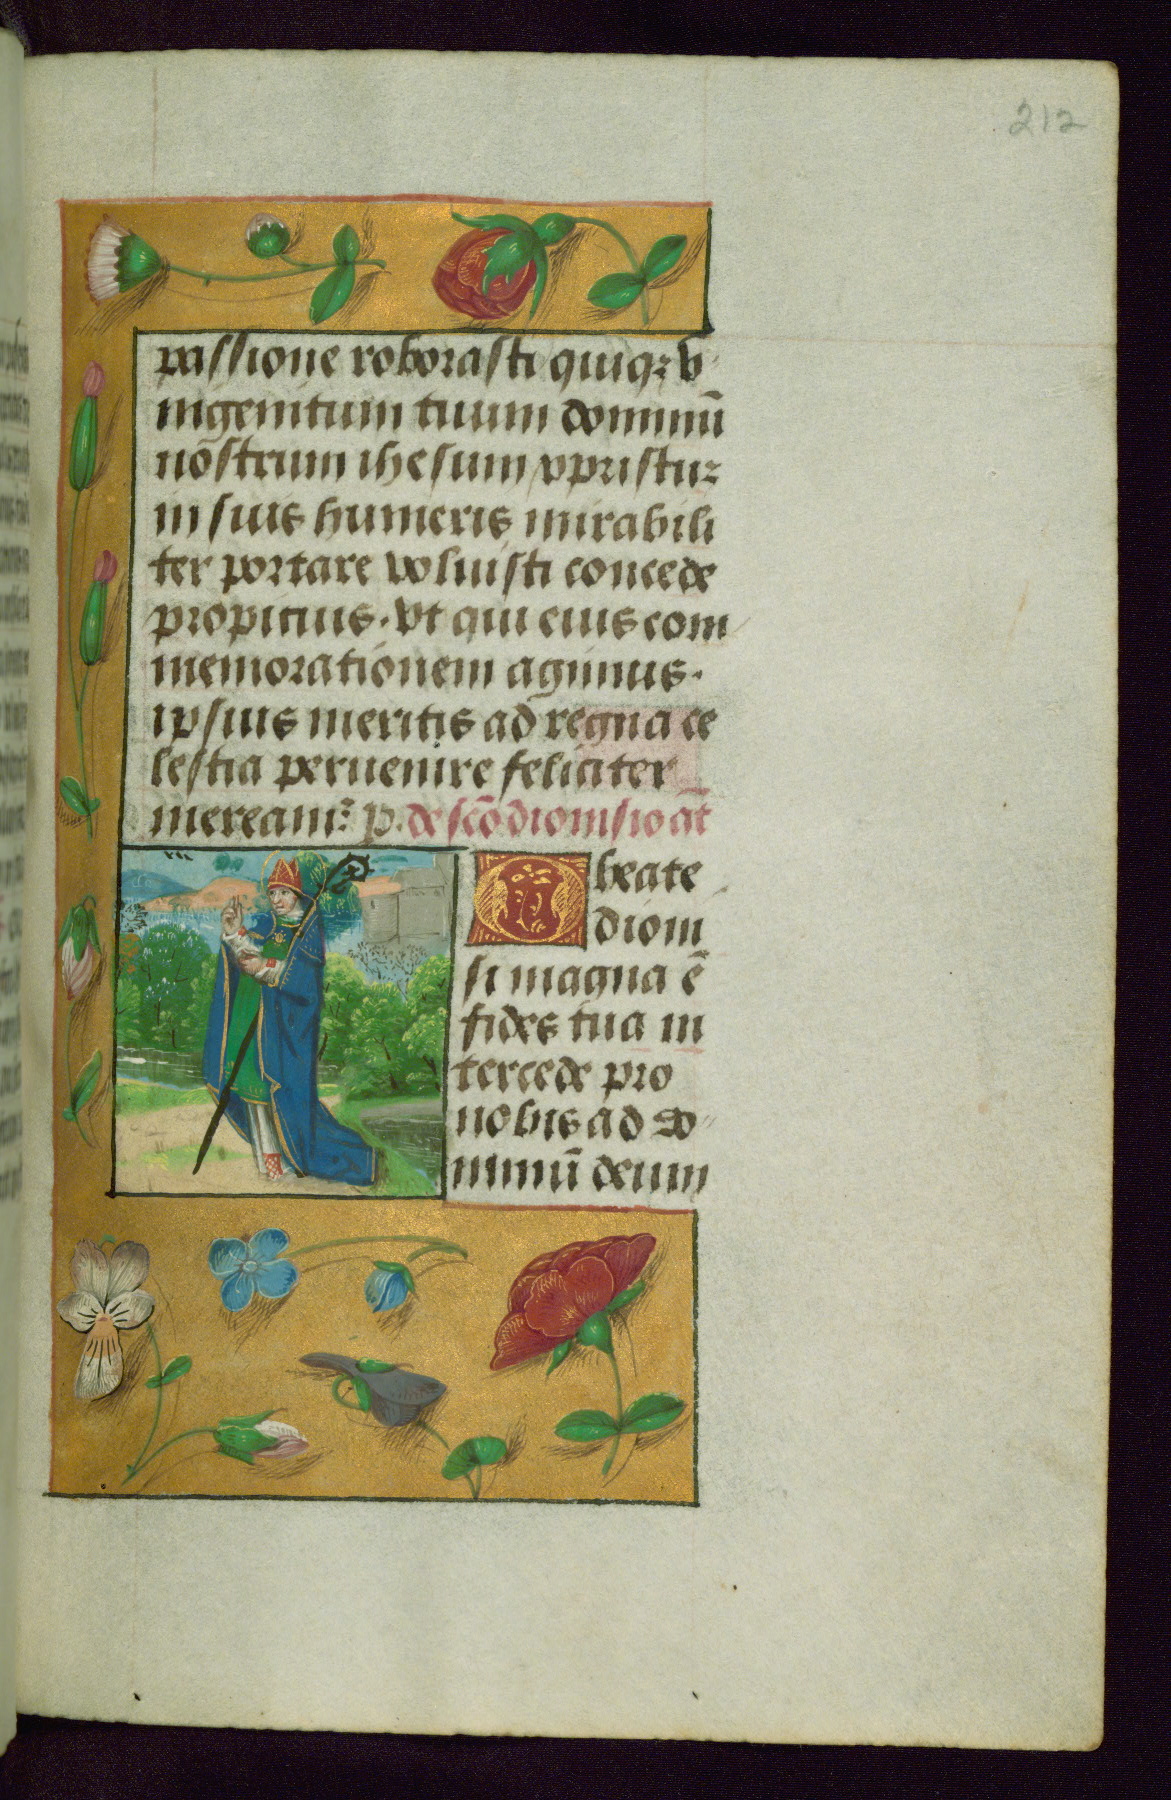 212
passione roborasti quiqꝫ v
ingenitum tuum dominū
nostrum ihesum xpristuꝫ
in suis humeris mirabili
ter portare voluisti concede
propicius · vt qui eius com
memorationem agimus ·
ipsius meritis ad regna ce
lestia peruenire feliciter
mereamᷣ p. de scō dionisio añt
O beate
dioni
si magna ē
fides tua in
tercede pro
nobis ad do
minū deum